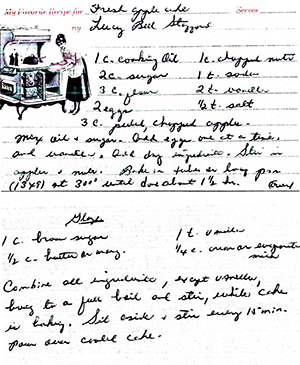 My Favorite Recipe for Fresh apple cake Serves
by Lucy Bell
1 c. cooking Oil 1 c. chopped nuts
2 c. sugar 1 t. soda
3 c. flour 2 t. vanilla
2 eggs ½ t. salt
3 c. peeled, chopped apples.
mix oil & sugar. Add eggs one at a time.
and vanilla. Add dry ingredients. Stir in
apples & nuts. Bake in tube or long pan
(13x9) at 300° until done about 1½ hr.
(over)
Glaze
1 c. brown sugar 1 t. vanilla
½ c. butter or marg. ¼ c. cream or evaporated
milk
Combine all ingredients, except vanilla,
bring to a full boil and stir, while cake
is baking. Set aside & stir every 15 min.
pour over cooled cake.